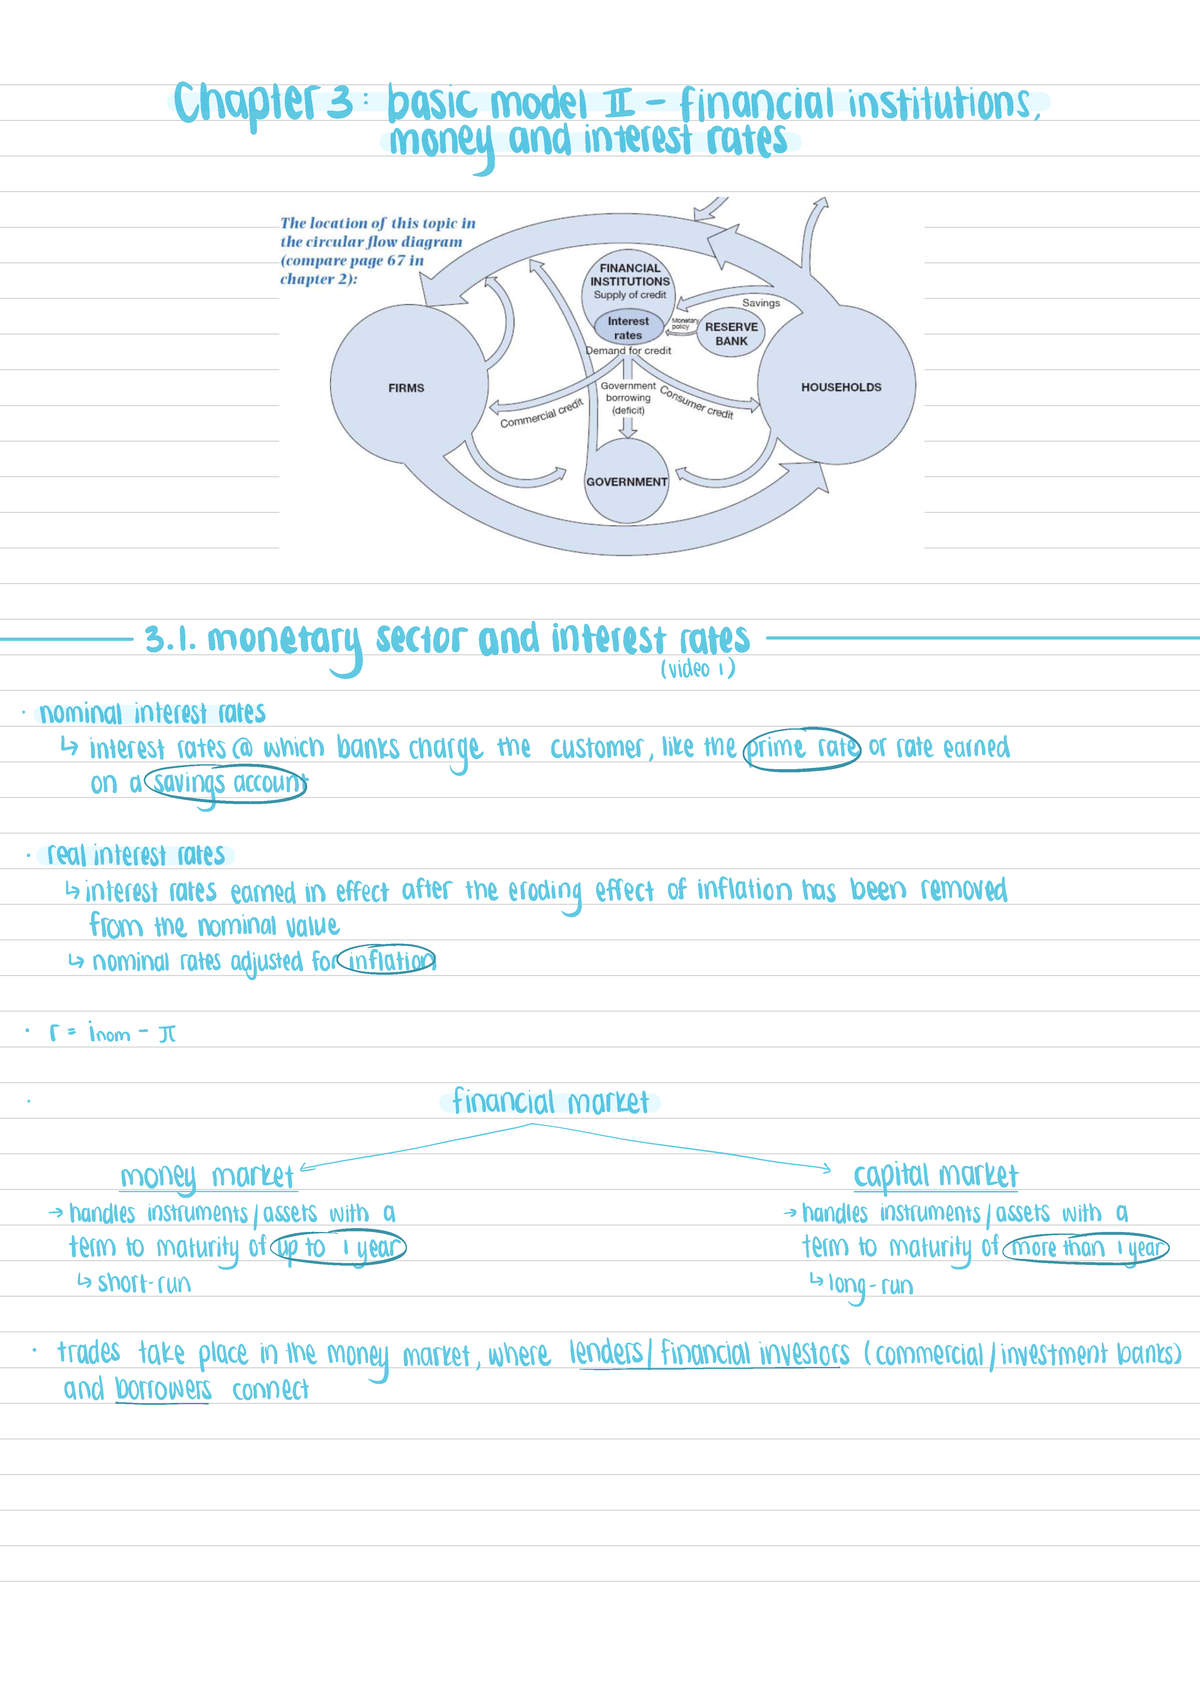 Chapter 3: basic model II - financial institutions,
money and interest rates
The location of this topic in
the circular flow diagram
(compare page 67 in
chapter 2):
FINANCIAL
INSTITUTIONS
Supply of credit
Interest
rates
Monetary
policy
RESERVE
BANK
Savings
Demand for credit
FIRMS
HOUSEHOLDS
Commercial credit
Government
borrowing
(deficit)
Consumer credit
GOVERNMENT
3.1. monetary sector and interest rates
(video 1)
· nominal interest rates
↳ interest rates @ which banks charge the customer, like the prime rate or rate earned
on a savings account
· real interest rates
↳ interest rates earned in effect after the eroding effect of inflation has been removed
from the nominal value
↳ nominal rates adjusted for inflation
· r = inom - π
· financial market
money market
→ handles instruments/assets with a
term to maturity of up to 1 year
↳ short-run
capital market
→ handles instruments/assets with a
term to maturity of more than 1 year
↳ long-run
· trades take place in the money market, where lenders/financial investors (commercial/investment banks)
and borrowers connect